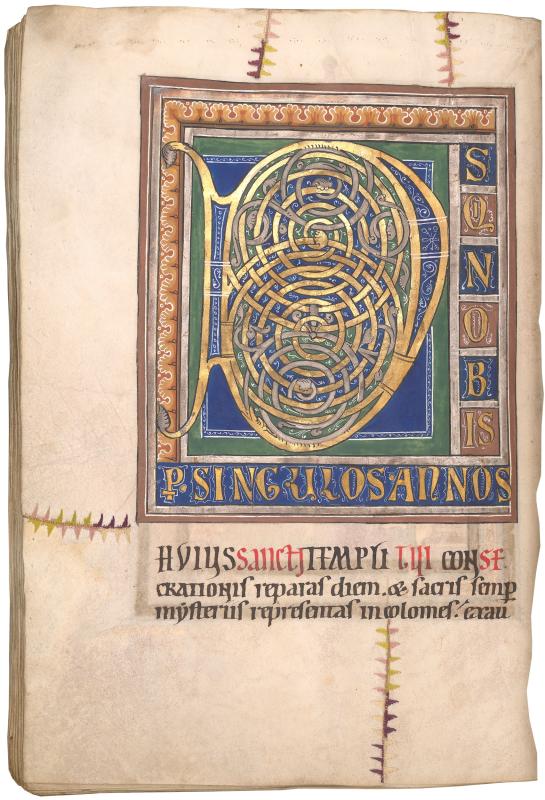 D
S
Q
N
O
B
IS
P·SINGULOSANNOS
HVIUS SANCTI TEMPLI TUI CONSE
crationis reparas diem. & sacris semp
mysteriis representas incolomes. exau